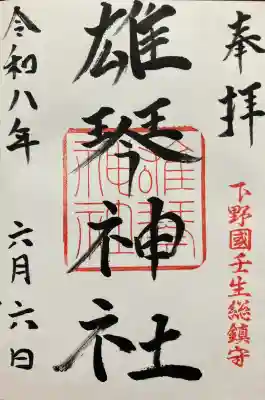 奉拝
下野國壬生総鎮守
雄琴神社
雄琴神社
令和八年 六月六日